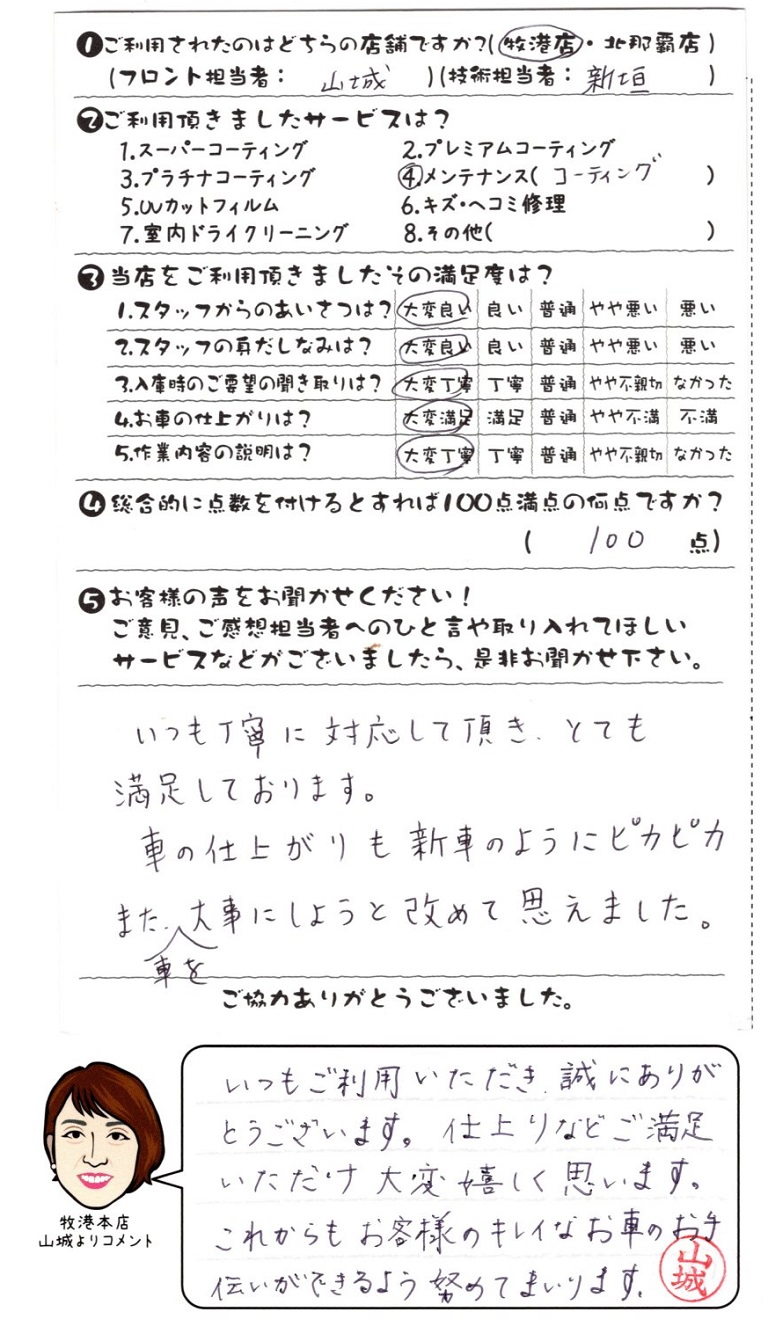 ❶ご利用されたのはどちらの店舗ですか?(牧港店・北那覇店)
(フロント担当者: 山城 )(技術担当者: 新垣 )
❷ご利用頂きましたサービスは?
1.スーパーコーティング 2.プレミアムコーティング
3.プラチナコーティング ④.メンテナンス( コーティング )
5.UVカットフィルム 6.キズ・ヘコミ修理
7.室内ドライクリーニング 8.その他( )
❸当店をご利用頂きましたその満足度は?
1.スタッフからのあいさつは? 大変良い 良い 普通 やや悪い 悪い
2.スタッフの身だしなみは? 大変良い 良い 普通 やや悪い 悪い
3.入庫時のご要望の聞き取りは? 大変丁寧 丁寧 普通 やや不親切 なかった
4.お車の仕上がりは? 大変満足 満足 普通 やや不満 不満
5.作業内容の説明は? 大変丁寧 丁寧 普通 やや不親切 なかった
❹総合的に点数を付けるとすれば100点満点の何点ですか?
( 100 点)
❺お客様の声をお聞かせください!
ご意見、ご感想担当者へのひと言や取り入れてほしい
サービスなどがございましたら、是非お聞かせ下さい。
いつも丁寧に対応して頂き、とても
満足しております。
車の仕上がりも新車のようにピカピカ
また、大事にしようと改めて思えました。
車を
ご協力ありがとうございました。
いつもご利用いただき、誠にありが
とうございます。仕上りなどご満足
いただけ大変嬉しく思います。
これからもお客様のキレイなお車のお手
伝いができるよう努めてまいります。
山城
牧港本店
山城よりコメント